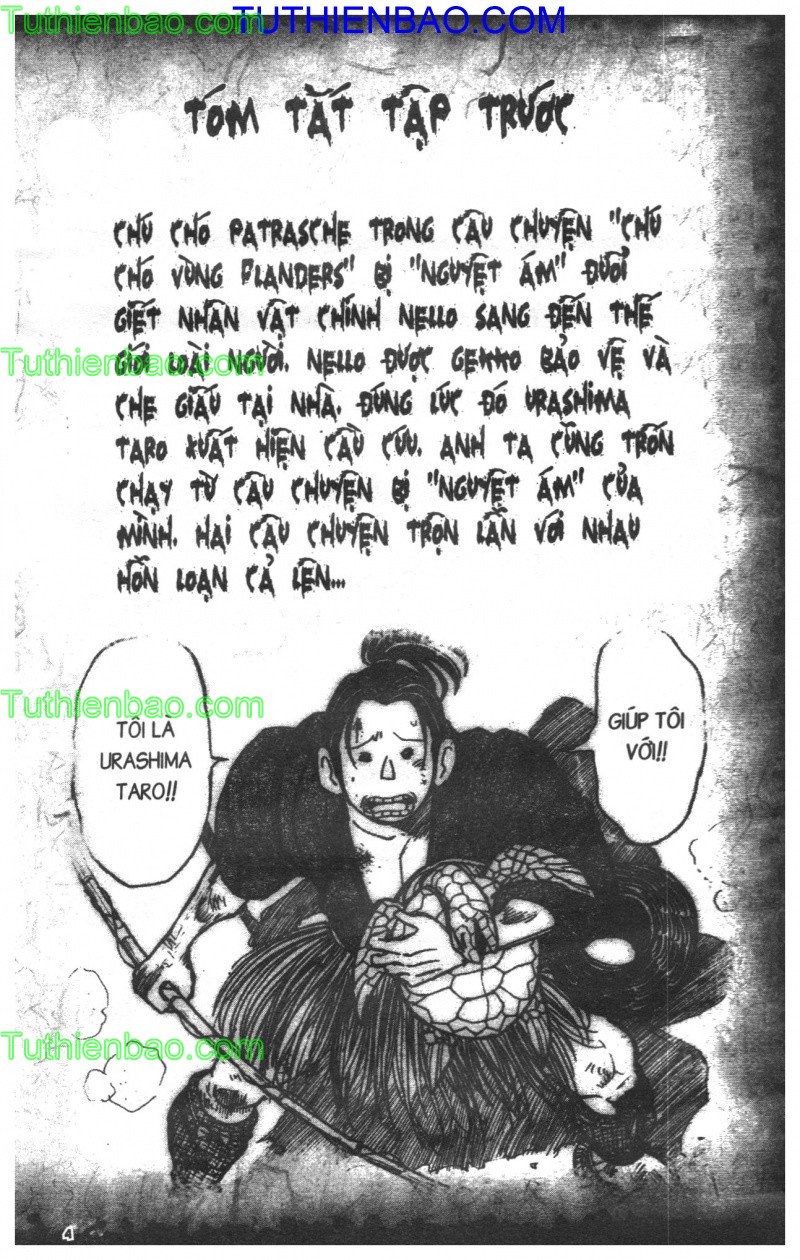 Tuthienbao.com TUTHIENBAO.COM
TÓM TẮT TẬP TRƯỚC
CHÚ CHÓ PATRASCHE TRONG CÂU CHUYỆN "CHÚ
CHÓ VÙNG FLANDERS" BỊ "NGUYỆT ÁM" ĐUỔI
GIẾT NHÂN VẬT CHÍNH NELLO SANG ĐẾN THẾ
GIỚI LOÀI NGƯỜI. NELLO ĐƯỢC GEKKO BẢO VỆ VÀ
Tuthienbao.com
CHE GIẤU TẠI NHÀ. ĐÚNG LÚC ĐÓ URASHIMA
TARO XUẤT HIỆN CẦU CỨU. ANH TA CŨNG TRỐN
CHẠY TỪ CÂU CHUYỆN BỊ "NGUYỆT ÁM" CỦA
MÌNH. HAI CÂU CHUYỆN TRỘN LẪN VỚI NHAU
HỖN LOẠN CẢ LÊN...
Tuthienbao.com
TÔI LÀ
URASHIMA
TARO!!
GIÚP TÔI
VỚI!!
Tuthienbao.com
4